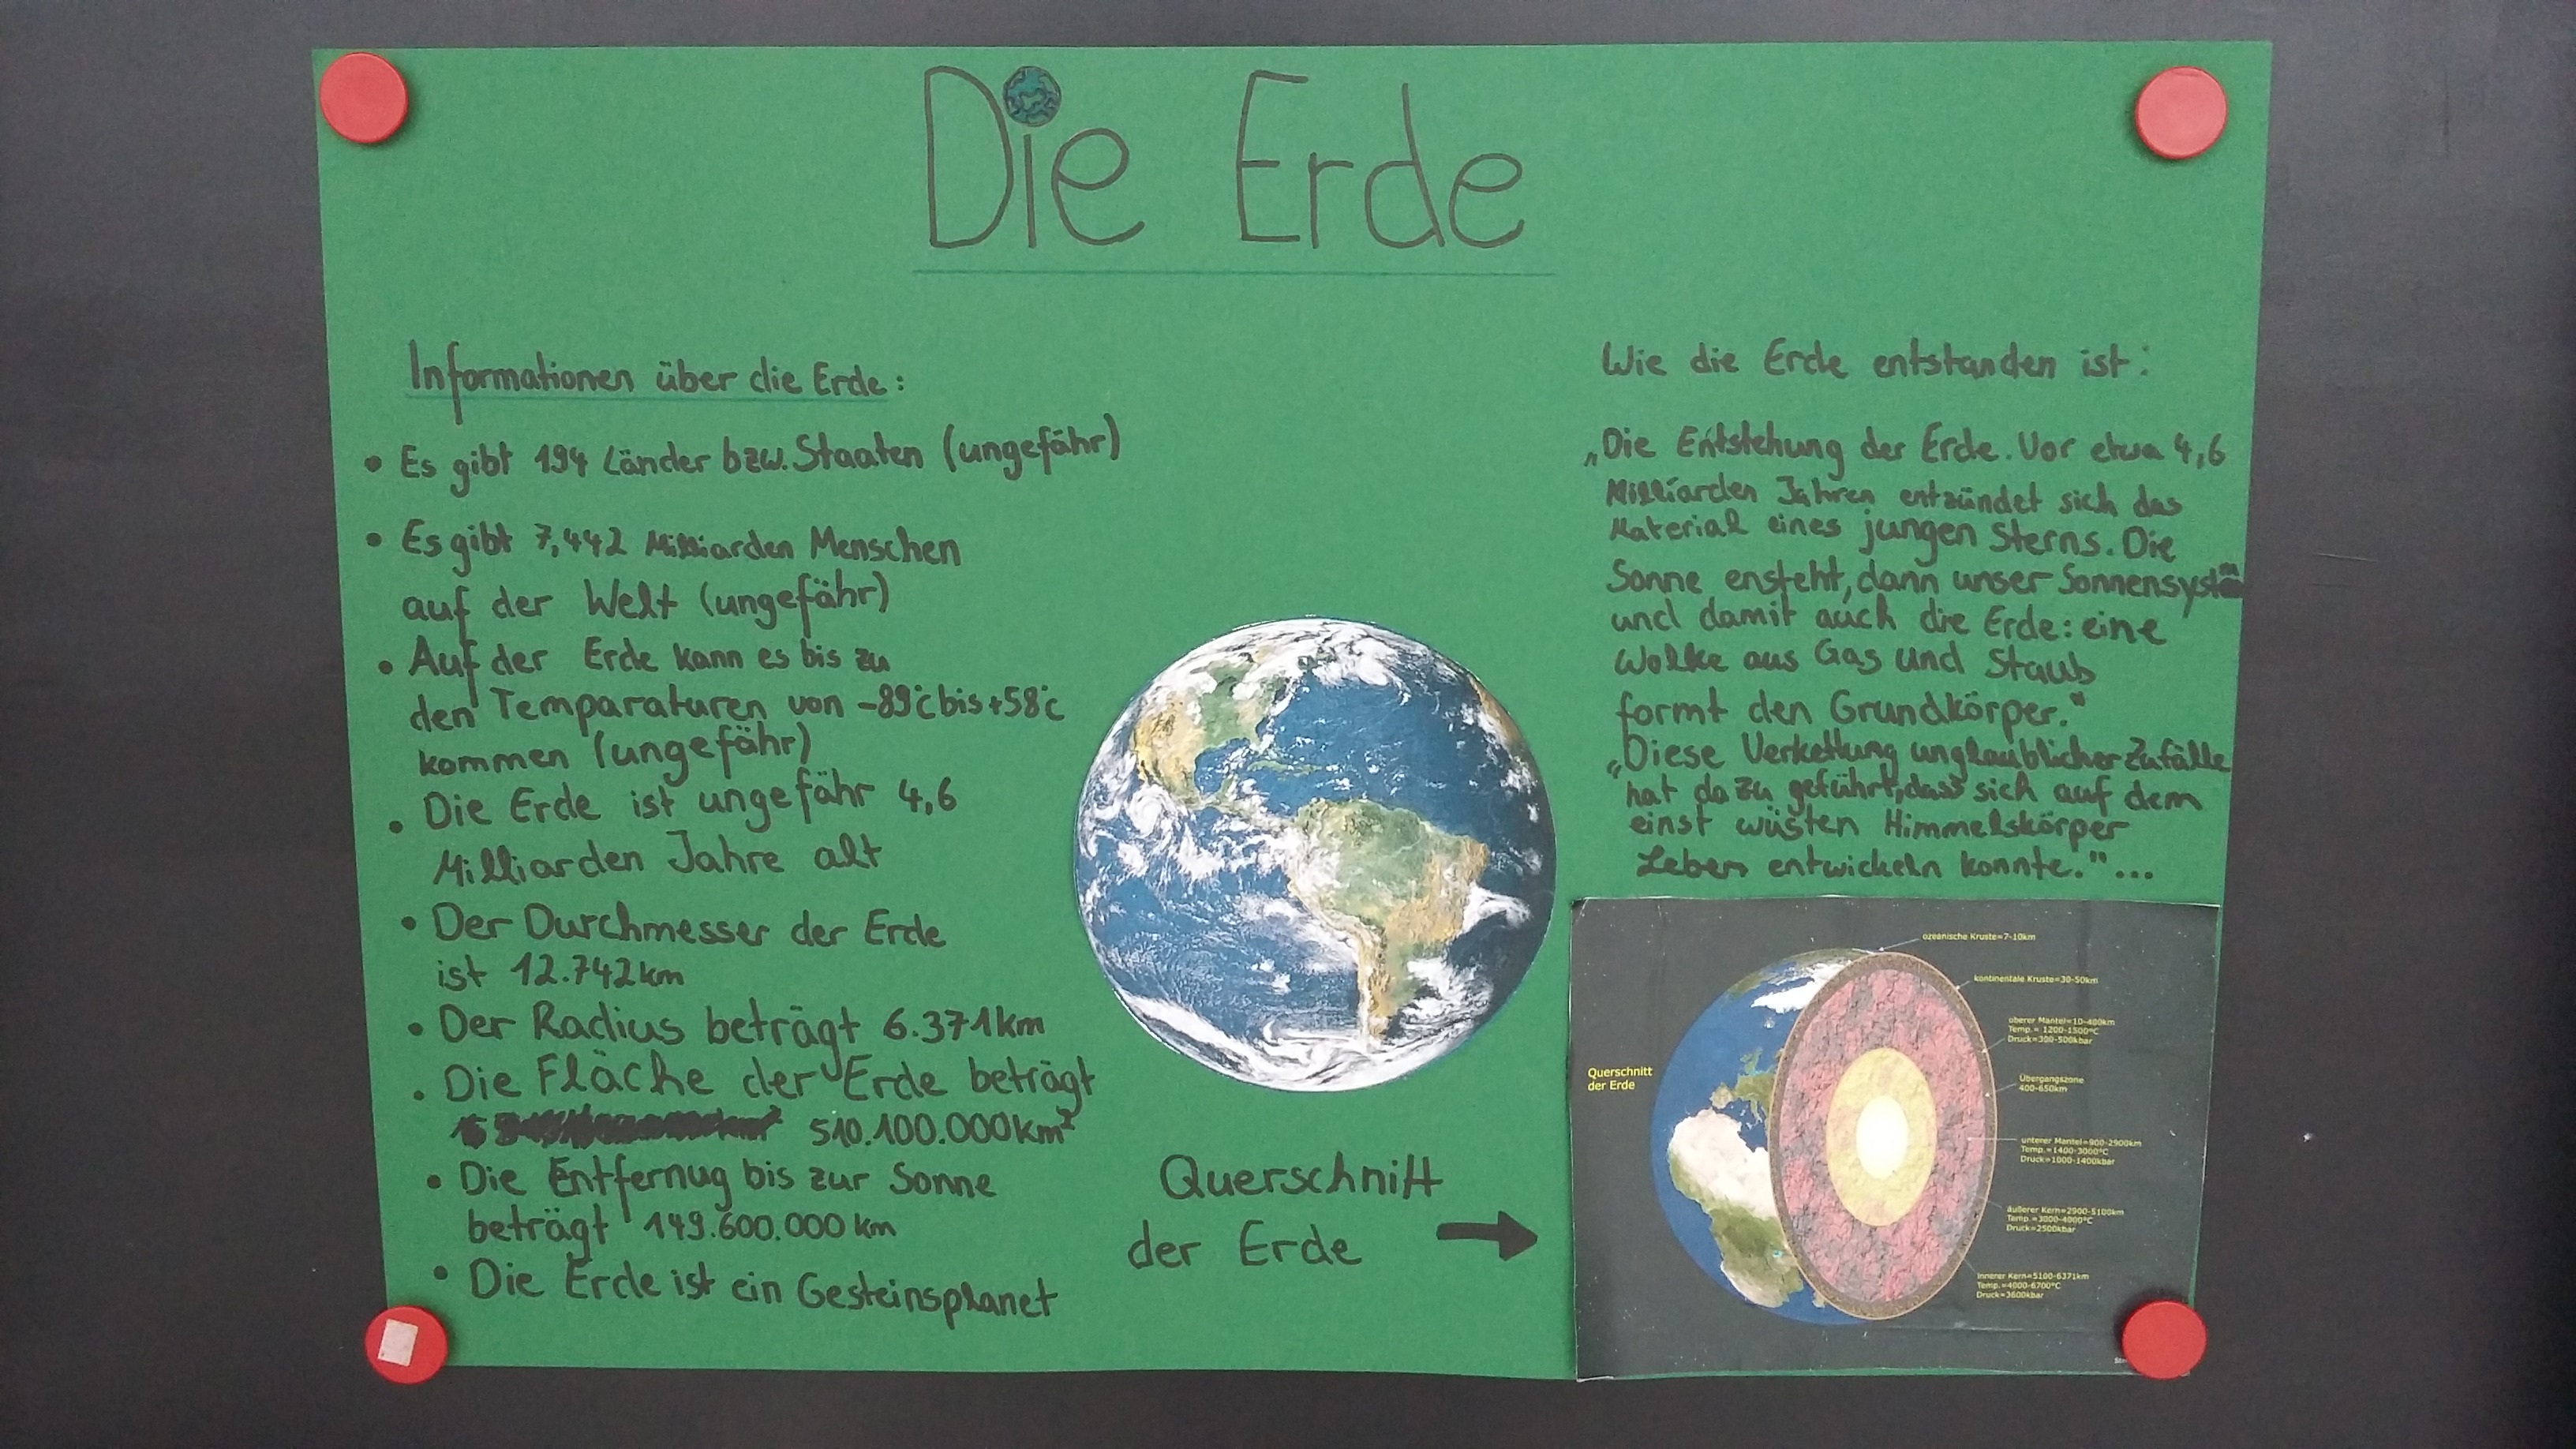 Die Erde
Informationen über die Erde:
• Es gibt 194 Länder bzw. Staaten (ungefähr)
• Es gibt 7,442 Milliarden Menschen
auf der Welt (ungefähr)
• Auf der Erde kann es bis zu
den Temperaturen von -89°C bis +58°C
kommen (ungefähr)
• Die Erde ist ungefähr 4,6
Milliarden Jahre alt
• Der Durchmesser der Erde
ist 12.742 km
• Der Radius beträgt 6.371 km
• Die Fläche der Erde beträgt
510.100.000 km²
• Die Entfernug bis zur Sonne
beträgt 149.600.000 km
• Die Erde ist ein Gesteinsplanet
Querschnitt
der Erde
Wie die Erde entstanden ist:
„Die Entstehung der Erde. Vor etwa 4,6
Milliarden Jahren entzündet sich das
Material eines jungen Sterns. Die
Sonne ensteht, dann unser Sonnensystem
und damit auch die Erde: eine
Wolke aus Gas und Staub
formt den Grundkörper."
„Diese Verkettung unglaublicher Zufälle
hat dazu geführt, dass sich auf dem
einst wüsten Himmelskörper
Leben entwickeln konnte."...
Querschnitt
der Erde
ozeanische Kruste=7-10km
kontinentale Kruste=30-50km
oberer Mantel=10-400km
Temp.= 1200-1500°C
Druck=300-500kbar
Übergangszone
400-650km
unterer Mantel=900-2900km
Temp.=1400-3000°C
Druck=1000-1400kbar
äußerer Kern=2900-5100km
Temp.=3000-4000°C
Druck=2500kbar
Innerer Kern=5100-6371km
Temp.=4000-6700°C
Druck=3600kbar